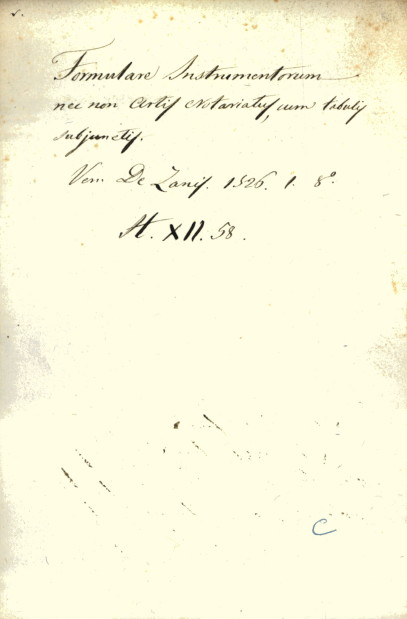 Formulare Instrumentorum
nec non Artis Notariatus, cum tabulis
subjunctis.
Ven. De Zanis. 1526. 1. 8º.
St. XII. 58.
C